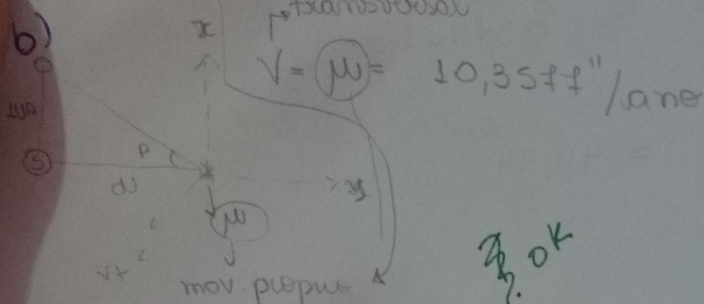 transversal
b)
x
V = μ = 10,3577"/ano
1UA
S
P
d
y
μ
vt
mov. próprio
ok